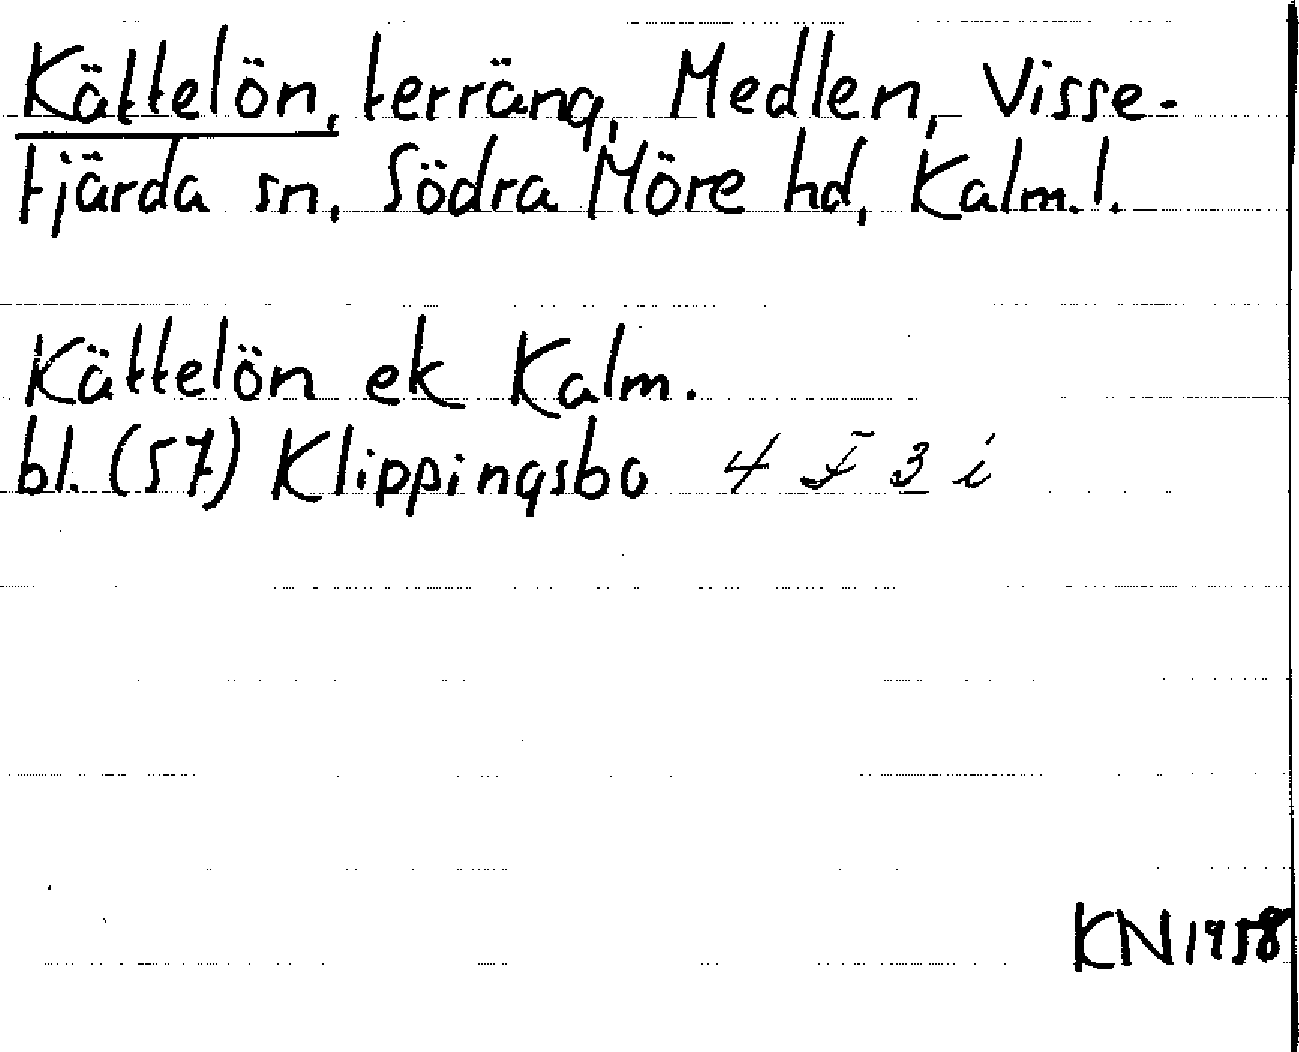 Kättelön, terräng, Medlen, Visse-
fjärda sn, Södra Möre hd, Kalm.l.
Kättelön ek Kalm.
bl. (57) Klippingsbo 4 F 3 i
KN 1958